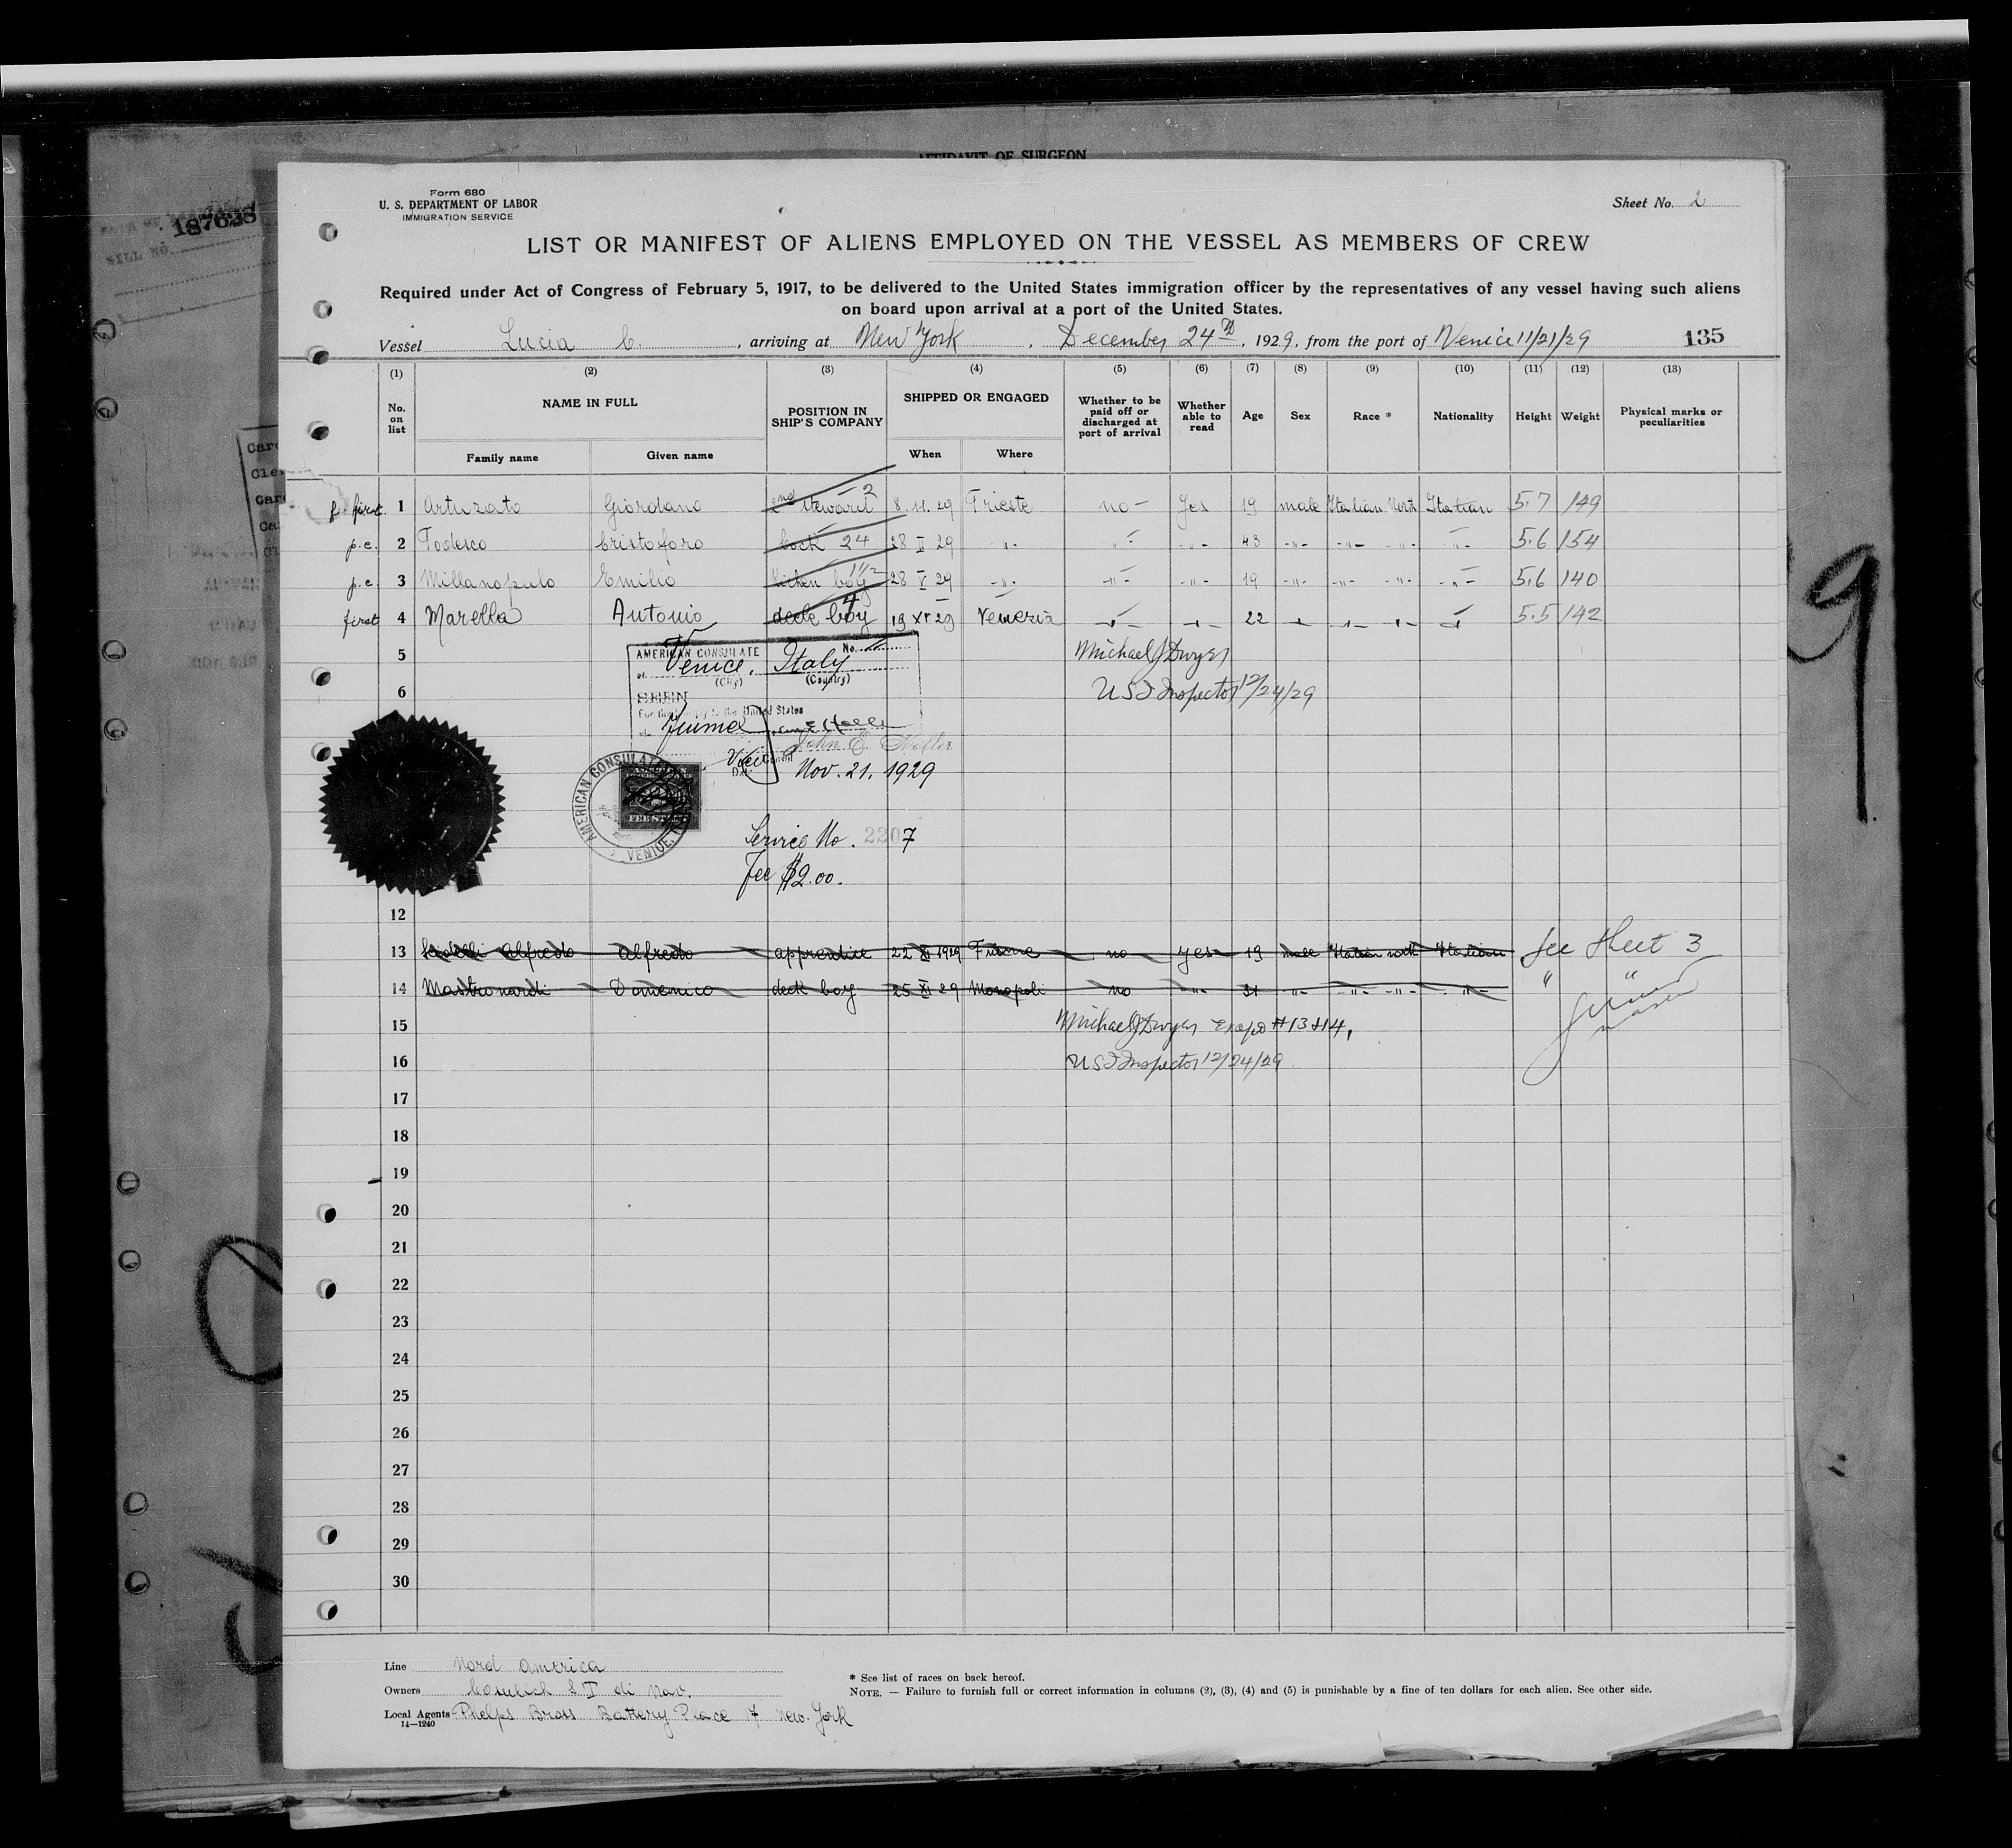 AFFIDAVIT OF SURGEON
187628
BILL NO.
Form 680
U. S. DEPARTMENT OF LABOR
IMMIGRATION SERVICE
Sheet No. 2
LIST OR MANIFEST OF ALIENS EMPLOYED ON THE VESSEL AS MEMBERS OF CREW
Required under Act of Congress of February 5, 1917, to be delivered to the United States immigration officer by the representatives of any vessel having such aliens
on board upon arrival at a port of the United States.
Vessel Lucia C. , arriving at New York , December 24th , 1929, from the port of Venice 11/21/29 135
(1) (2) (3) (4) (5) (6) (7) (8) (9) (10) (11) (12) (13)
No. on list NAME IN FULL POSITION IN SHIP'S COMPANY SHIPPED OR ENGAGED Whether to be paid off or discharged at port of arrival Whether able to read Age Sex Race * Nationality Height Weight Physical marks or peculiarities
Family name Given name When Where
first 1 Artuzato Giordano 2nd steward 2 8.11.29 Trieste no - Yes 19 male Italian North Italian 5.7 149
p.c. 2 Todesco Cristoforo Cook 24 28 29 -"- -"- -"- 43 -"- -"- -"- -"- 5.6 154
p.c. 3 Millanopulo Emilio Kitchen boy 1 1/2 28 V 29 -"- -"- -"- 19 -"- -"- -"- -"- 5.6 140
first 4 Marella Antonio deck boy 4 19 XI 29 Venezia -"- -"- 22 -"- -"- -"- -"- 5.5 142
5 AMERICAN CONSULATE No. Michael J Dwyer
at Venice, Italy
(City) (Country)
6 SEEN USI Inspector 12/24/29
For the journey to the United States
via Fiume
John E. Holler
Vice Consul
Date Nov. 21. 1929
AMERICAN CONSULATE VENICE,
FEE STAMP
Service No. 2207
Fee $2.00.
12
13 Alfredo Alfredo apprentice 22 XI 1929 Fiume no yes 19 male Italian north Italian See Sheet 3
14 Mastronardi Domenico deck boy 25 XI 29 Monopoli no -"- 31 -"- -"- -"- -"- " "
15 Michael J Dwyer #13 &14,
16 USI Inspector 12/24/29
17
18
19
20
21
22
23
24
25
26
27
28
29
30
Line Nord America
Owners Cosulich S T di Nav.
Local Agents Phelps Bross Battery Place 17 New-York
14—1240
* See list of races on back hereof.
NOTE. — Failure to furnish full or correct information in columns (2), (3), (4) and (5) is punishable by a fine of ten dollars for each alien. See other side.